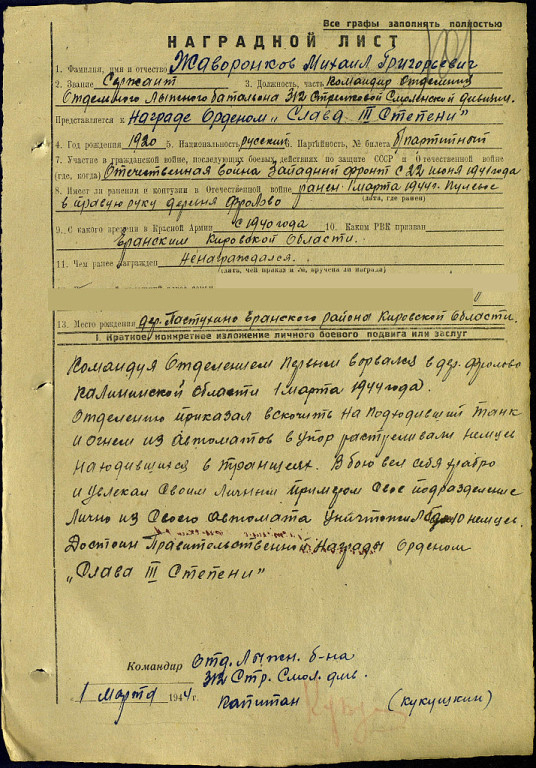 Все графы заполнять полностью
НАГРАДНОЙ ЛИСТ
1. Фамилия, имя и отчество Жаворонков Михаил Григорьевич
2. Звание Сержант 3. Должность, часть Командир Отделения
Отдельного Лыжного батальона 312 Стрелковой Смоленской дивизии.
Представляется к Награде Орденом „Слава III Степени"
4. Год рождения 1920 5. Национальность русский 6. Партийность, № билета б/партийный
7. Участие в гражданской войне, последующих боевых действиях по защите СССР и Отечественной войне
(где, когда) Отечественная война Западный фронт с 22 июня 1941 года
8. Имеет ли ранения и контузии в Отечественной войне ранен 1 марта 1944г. Пулевое
в правую руку деревня Фролово
(дата, где ранен)
9. С какого времени в Красной Армии с 1940 года 10. Каким РВК призван
Яранским Кировской Области.
11. Чем ранее награжден ненаграждался.
(дата, чей приказ и №, вручена ли награда)
13. Место рождения дер. Пастухино Яранского района Кировской Области.
I. Краткое, конкретное изложение личного боевого подвига или заслуг
Командуя Отделением Первым ворвался в дер. Фролово
Калининской Области 1 марта 1944 года.
Отделению приказал вскочить на подходивший танк
и огнем из Автоматов в упор расстреливали немцев
находившихся в траншеях. В бою вел себя храбро
и увлекал Своим Личным Примером Свое подразделение
Лично из Своего Автомата Уничтожил 10 немцев.
Достоин Правительственной Награды Орденом
„Слава III Степени"
Командир Отд. Лыжн. б-на
312 Стр. Смол. див.
„1 марта 1944 г. Капитан (Кукушкин)